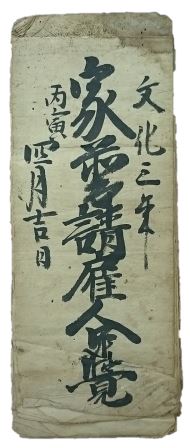 文化三年
家普請雇人覺
丙寅
四月吉日